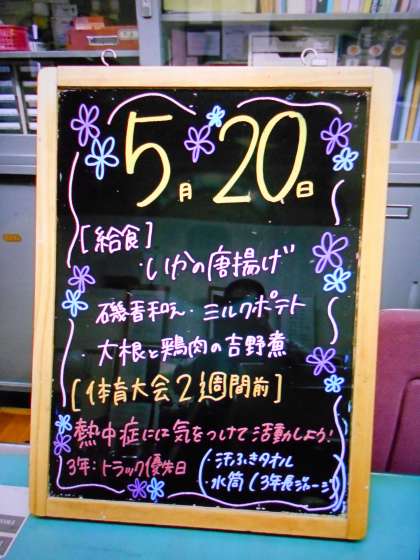 5月20日
[給食]
・いかの唐揚げ
磯香和え・ミルクポテト
・大根と鶏肉の吉野煮
[体育大会2週間前]
熱中症には気をつけて活動しよう!
3年:トラック優先日
・汗ふきタオル
・水筒(3年長ジャージ)